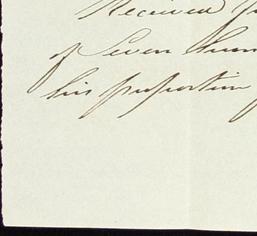 Received
of Seven
his proportion